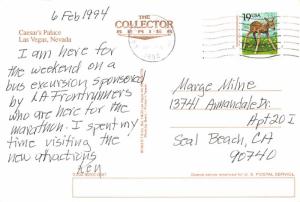 6 Feb 1994
THE
COLLECTOR
SERIES
Caesar's Palace
Las Vegas, Nevada
19 USA
1994
I am here for
the weekend on a
bus excursion sponsored
by LA Frontrunners
who are here for the
marathon. I spent my
time visiting the
new attractions
Ken
Marge Milne
13741 Annandale Dr.
Apt 20I
Seal Beach, CA
90740
U.S. POSTAL SERVICE